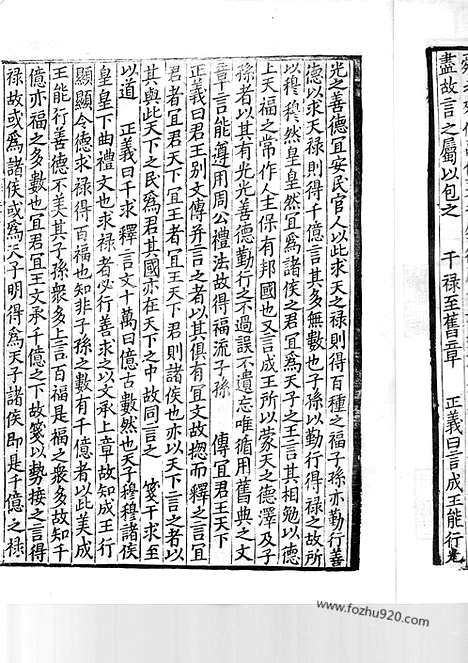 盡故言之屬以包之　干禄至舊章　正義曰言成王能行光
光之善德宜安民官人以此求天之禄則得百種之福子孫亦勤行善
德以求天禄則得千億言其多無數也子孫以勤行得禄之故所
以穆穆然皇皇然宜爲諸侯之君宜爲天子之王言其相勉以德
上天福之常作人主保有邦國也又言成王所以蒙天之德澤及子
孫者以其有光光善德勤行之不過誤不遺忘唯循用舊典之文
章言能遵用周公禮法故得福流子孫　傳宜君王天下
正義曰君王别文傳并言之者以其俱有宜文故揔而釋之言宜
君者宜君天下宜王者宜王天下君則諸侯也亦以天下言之者以
其與此天下之民爲君其國亦在天下之中故同言之　箋干求至
以道　正義曰干求釋言文十萬曰億古數然也天子穆穆諸侯
皇皇下曲禮文也求禄者必行善求之以文承上章故知成王行
顯顯令德求禄得百福也知非子孫之數有千億者以此美成
王能行善德不美其子孫衆多上言百福是福之衆多故知千
億亦福之多數也宜君宜王文承千億之下故箋以勢接之言得
禄故或爲諸侯或爲天子明得爲天子諸侯即是千億之禄
www.fozhu920.com